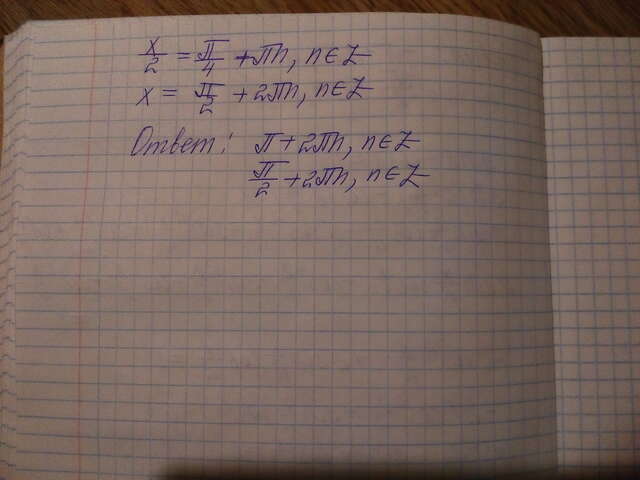 x/2 = π/4 + πn, n∈Z
x = π/2 + 2πn, n∈Z
Ответ: π + 2πn, n∈Z
π/2 + 2πn, n∈Z